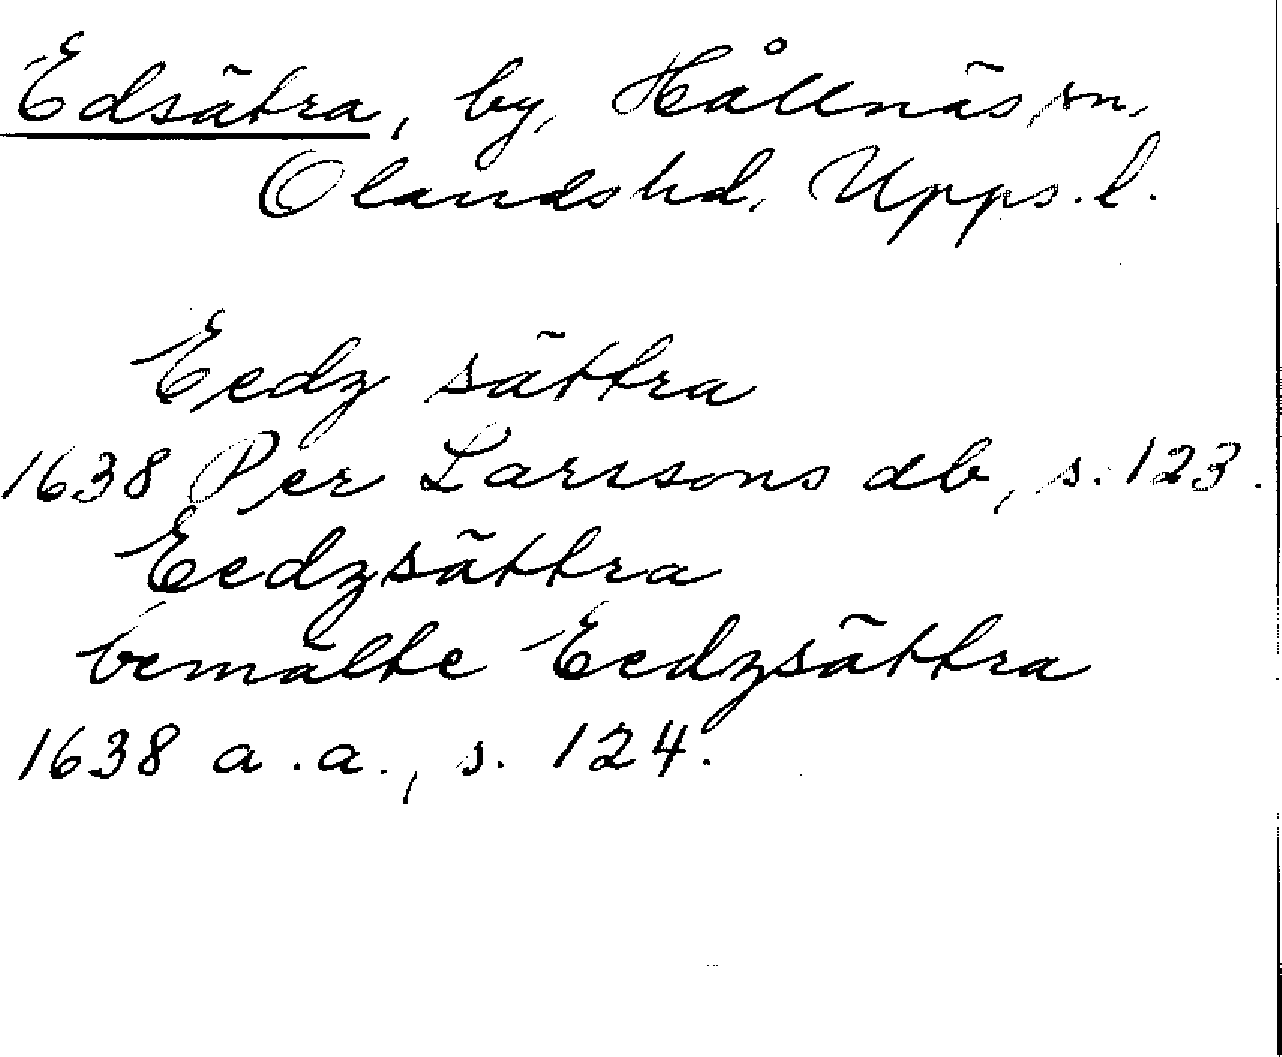 Edsätra, by, Hållnäs sn,
Olands hd, Upps. l.
Eedz sättra
1638 Per Larssons db, s. 123.
Eedzsättra
bemälte Eedzsättra
1638 a.a., s. 124.